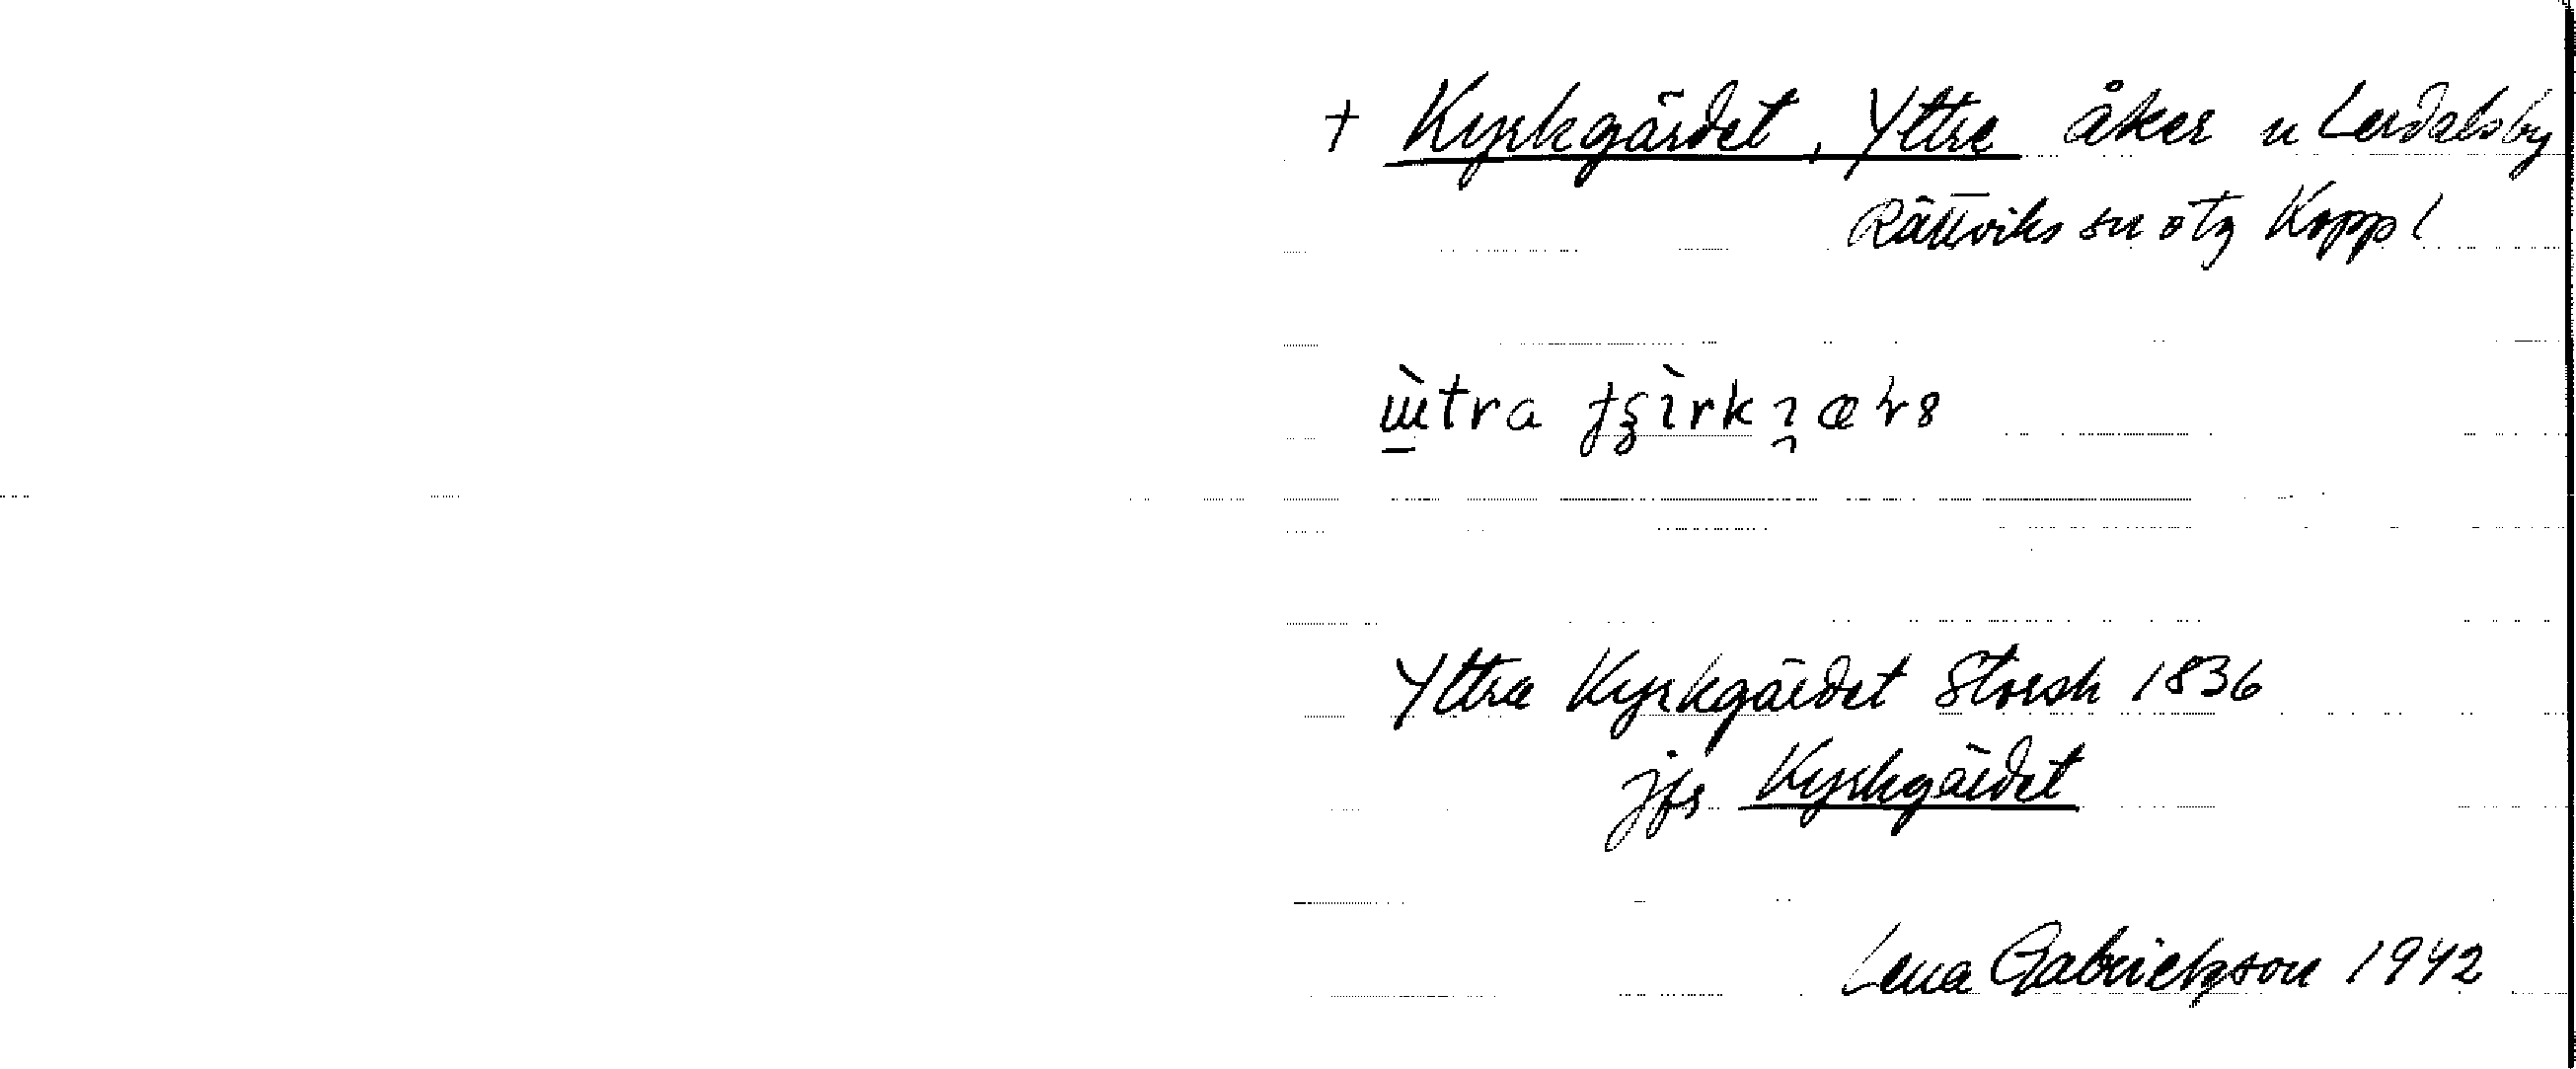 + Kyrkgärdet, Yttre åker n Lerdalsby
Rättviks sn o tg Kopp l
Yttra Kyrkgärdet Storsk 1836
jfr Kyrkgärdet
Lena Gabrielsson 1942